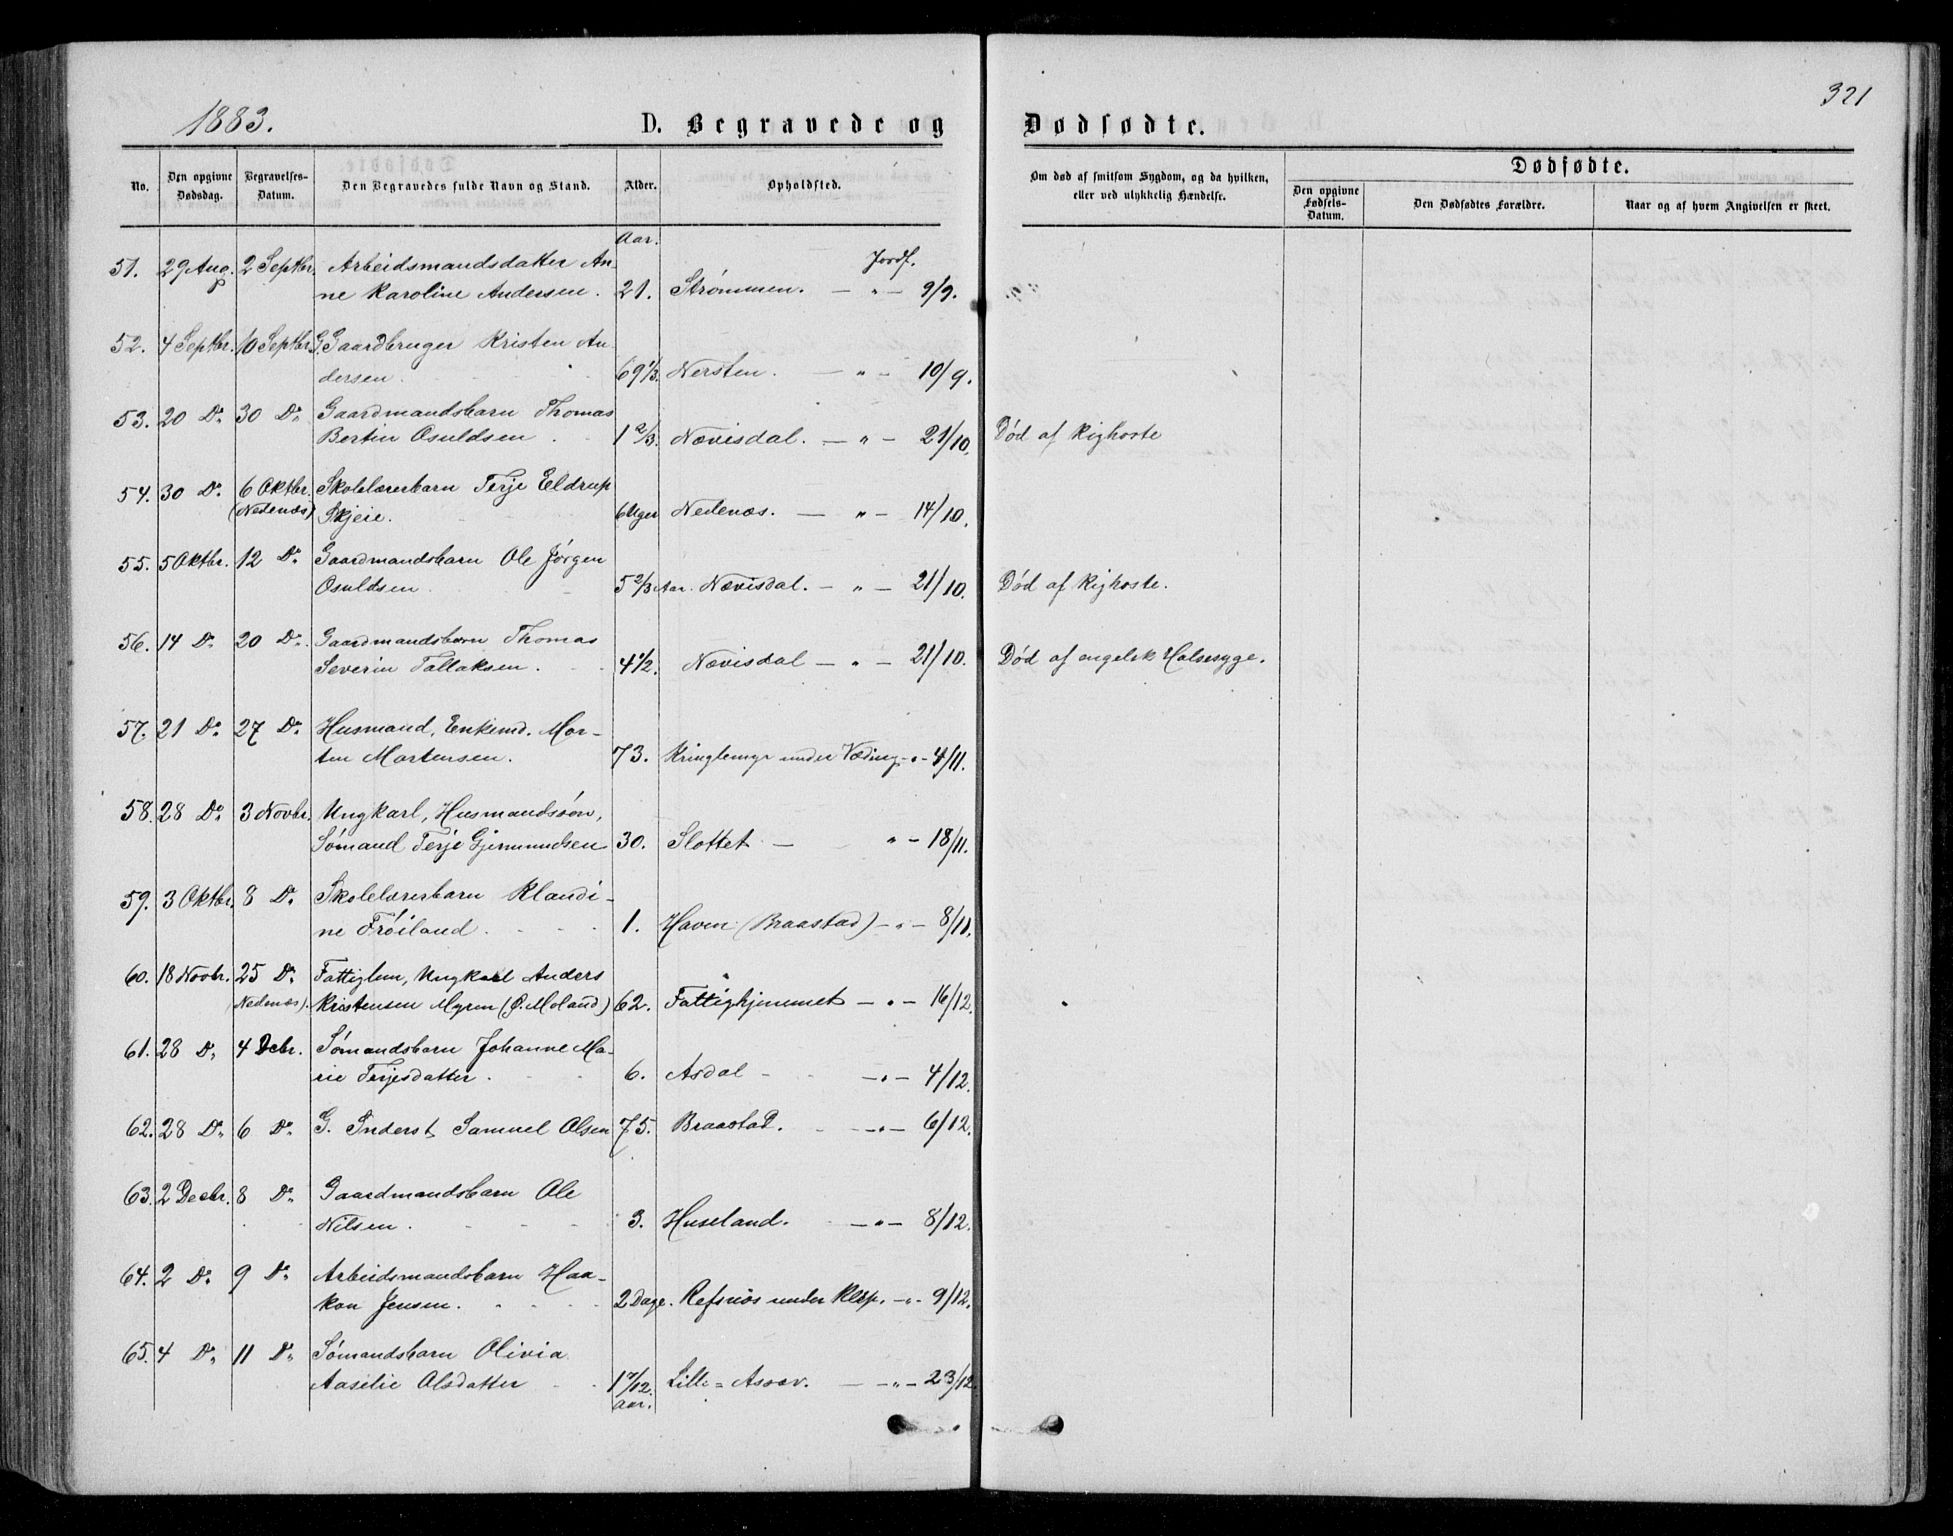 1883.
D. Begravede og
Dødfødte.
321
No.
Den opgivne Dødsdag.
Begravelses-Datum.
Den Begravedes fulde Navn og Stand.
Alder.
Opholdsted.
Om død af smitsom Sygdom, og da hvilken, eller ved ulykkelig Hændelse.
Dødfødte.
Den opgivne Fødsels-Datum.
Den Dødfødtes Forældre.
Naar og af hvem Angivelsen er skeet.
Aar. Jordf.
51. 29 Aug. 2 Septbr. Arbeidsmandsdatter An-
ne Karoline Andersen. 21. Strømmen. — " — 9/9.
52. 4 Septbr. 10 Septbr. G. Gaardbruger Kristen An-
dersen. 69 1/3. Nersten. — " — 10/9.
53. 20 Do 30 Do Gaardmandsbarn Thomas
Bertin Osuldsen. 1 2/3. Nævisdal. — " — 21/10. Død af Kighoste
54. 30 Do 6 Oktbr. Skolelærerbarn Terje Eldrup
(Nedenæs) Skjeie. 6 Uger Nedenæs. — " — 14/10.
55. 5 Oktbr. 12 Do Gaardmandsbarn Ole Jørgen
Osuldsen. 5 2/3 Aar. Nævisdal. — " — 21/10. Død af Kighoste.
56. 14 Do 20 Do Gaardmandsbarn Thomas
Severin Tallaksen. 4 1/2. Nævisdal — " — 21/10. Død af engelsk Halssyge.
57. 21 Do 27 Do Husmand, Enkemd. Mor-
ten Mortensen. 73. Kringlemyr under Væding - " - 4/11.
58. 28 Do 3 Novbr. Ungkarl, Husmandssøn,
Sømand Terje Gjermundsen 30. Slottet — " — 18/11.
59. 3 Oktbr. 8 Do Skolelærerbarn Klaudi-
ne Frøiland. 1. Haven (Braastad) — " — 8/11.
60. 18 Novbr. 25 Do Fattiglem, Ungkarl Anders
(Nedenæs). Kristensen Myren (Ø. Moland) 62. Fattighjemmet — " — 16/12.
61. 28 Do 4 Decbr. Sømandsbarn Johanne Ma-
rie Terjesdatter. 6. Asdal — " — 4/12.
62. 28 Do 6 Do G. Inderst Samuel Olsen 75. Braastad. — " — 6/12.
63. 2 Decbr. 8 Do Gaardmandsbarn Ole
Nilsen. 3. Huseland. — " — 8/12.
64. 2 Do 9 Do Arbeidsmandsbarn Haa-
kon Jensen. 2 Dage. Refsnes under — " — 9/12.
65. 4 Do 11 Do Sømandsbarn Olivia
Aaselie Olsdatter 1 7/12. Lille= — " — 23/12.
Aar.